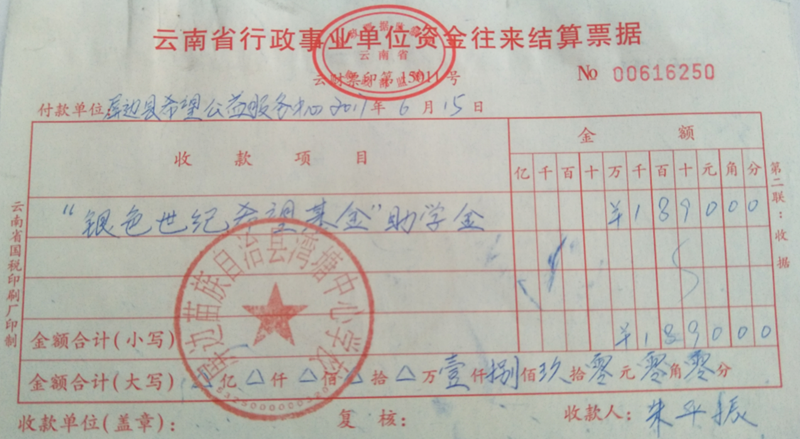 云南省行政事业单位资金往来结算票据
云南省
云财票印第15011号
No 00616250
付款单位 屏边县希望公益服务中心 年 6 月 15 日
收款项目
金额
亿 千 百 十 万 千 百 十 元 角 分
"银色世纪希望基金"助学金 ¥189000
金额合计(小写) ¥189000
金额合计(大写) △亿△仟△佰△拾△万壹仟捌佰玖拾零元零角零分
收款单位(盖章): 复核: 收款人: 朱平振
屏边苗族自治县湾塘中心学校
第二联:收据
云南省国税印刷厂印制